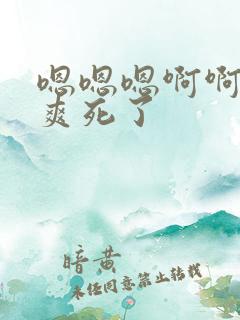 嗯嗯嗯啊啊
爽死了
暗黄
未经同意禁止转载